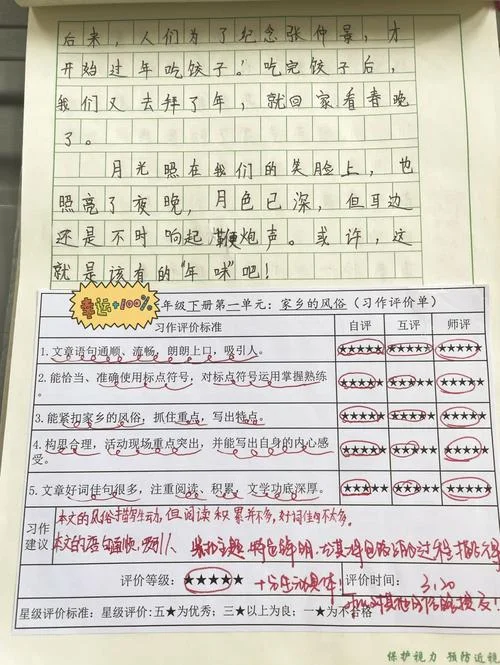 后来，人们为了纪念张仲景，才
开始过年吃饺子！吃完饺子后，
我们又去拜了年，就回家看春晚
了。
月光照在我们的笑脸上，也
照亮了夜晚，月色已深，但耳边
还是不时响起鞭炮声。或许，这
就是该有的“年味”吧！
幸运+100%
年级下册第一单元：家乡的风俗（习作评价单）
习作评价标准 自评 互评 师评
1.文章语句通顺、流畅，朗朗上口，吸引人。 ★★★★★ ★★★★★ ★★★★★
2.能恰当、准确使用标点符号，对标点符号运用掌握熟练。 ★★★★★ ★★★★★ ★★★★★
3.能紧扣家乡的风俗，抓住重点，写出特点。 ★★★★★ ★★★★★ ★★★★★
4.构思合理，活动现场重点突出，并能写出自身的内心感
受。 ★★★★★ ★★★★★ ★★★★★
5.文章好词佳句很多，注重阅读、积累，文学功底深厚。 ★★★★★ ★★★★★ ★★★★★
习作
建议
本文的风俗描写生动，但阅读积累并不多，好词佳句不太多。
本文的语句通顺，
主题 特色鲜明
评价等级：★★★★★ 十分生动具体！ 评价时间：3.20
星级评价标准：星级评价：五★为优秀；三★以上为良；一★为不合格
保护视力 预防近视